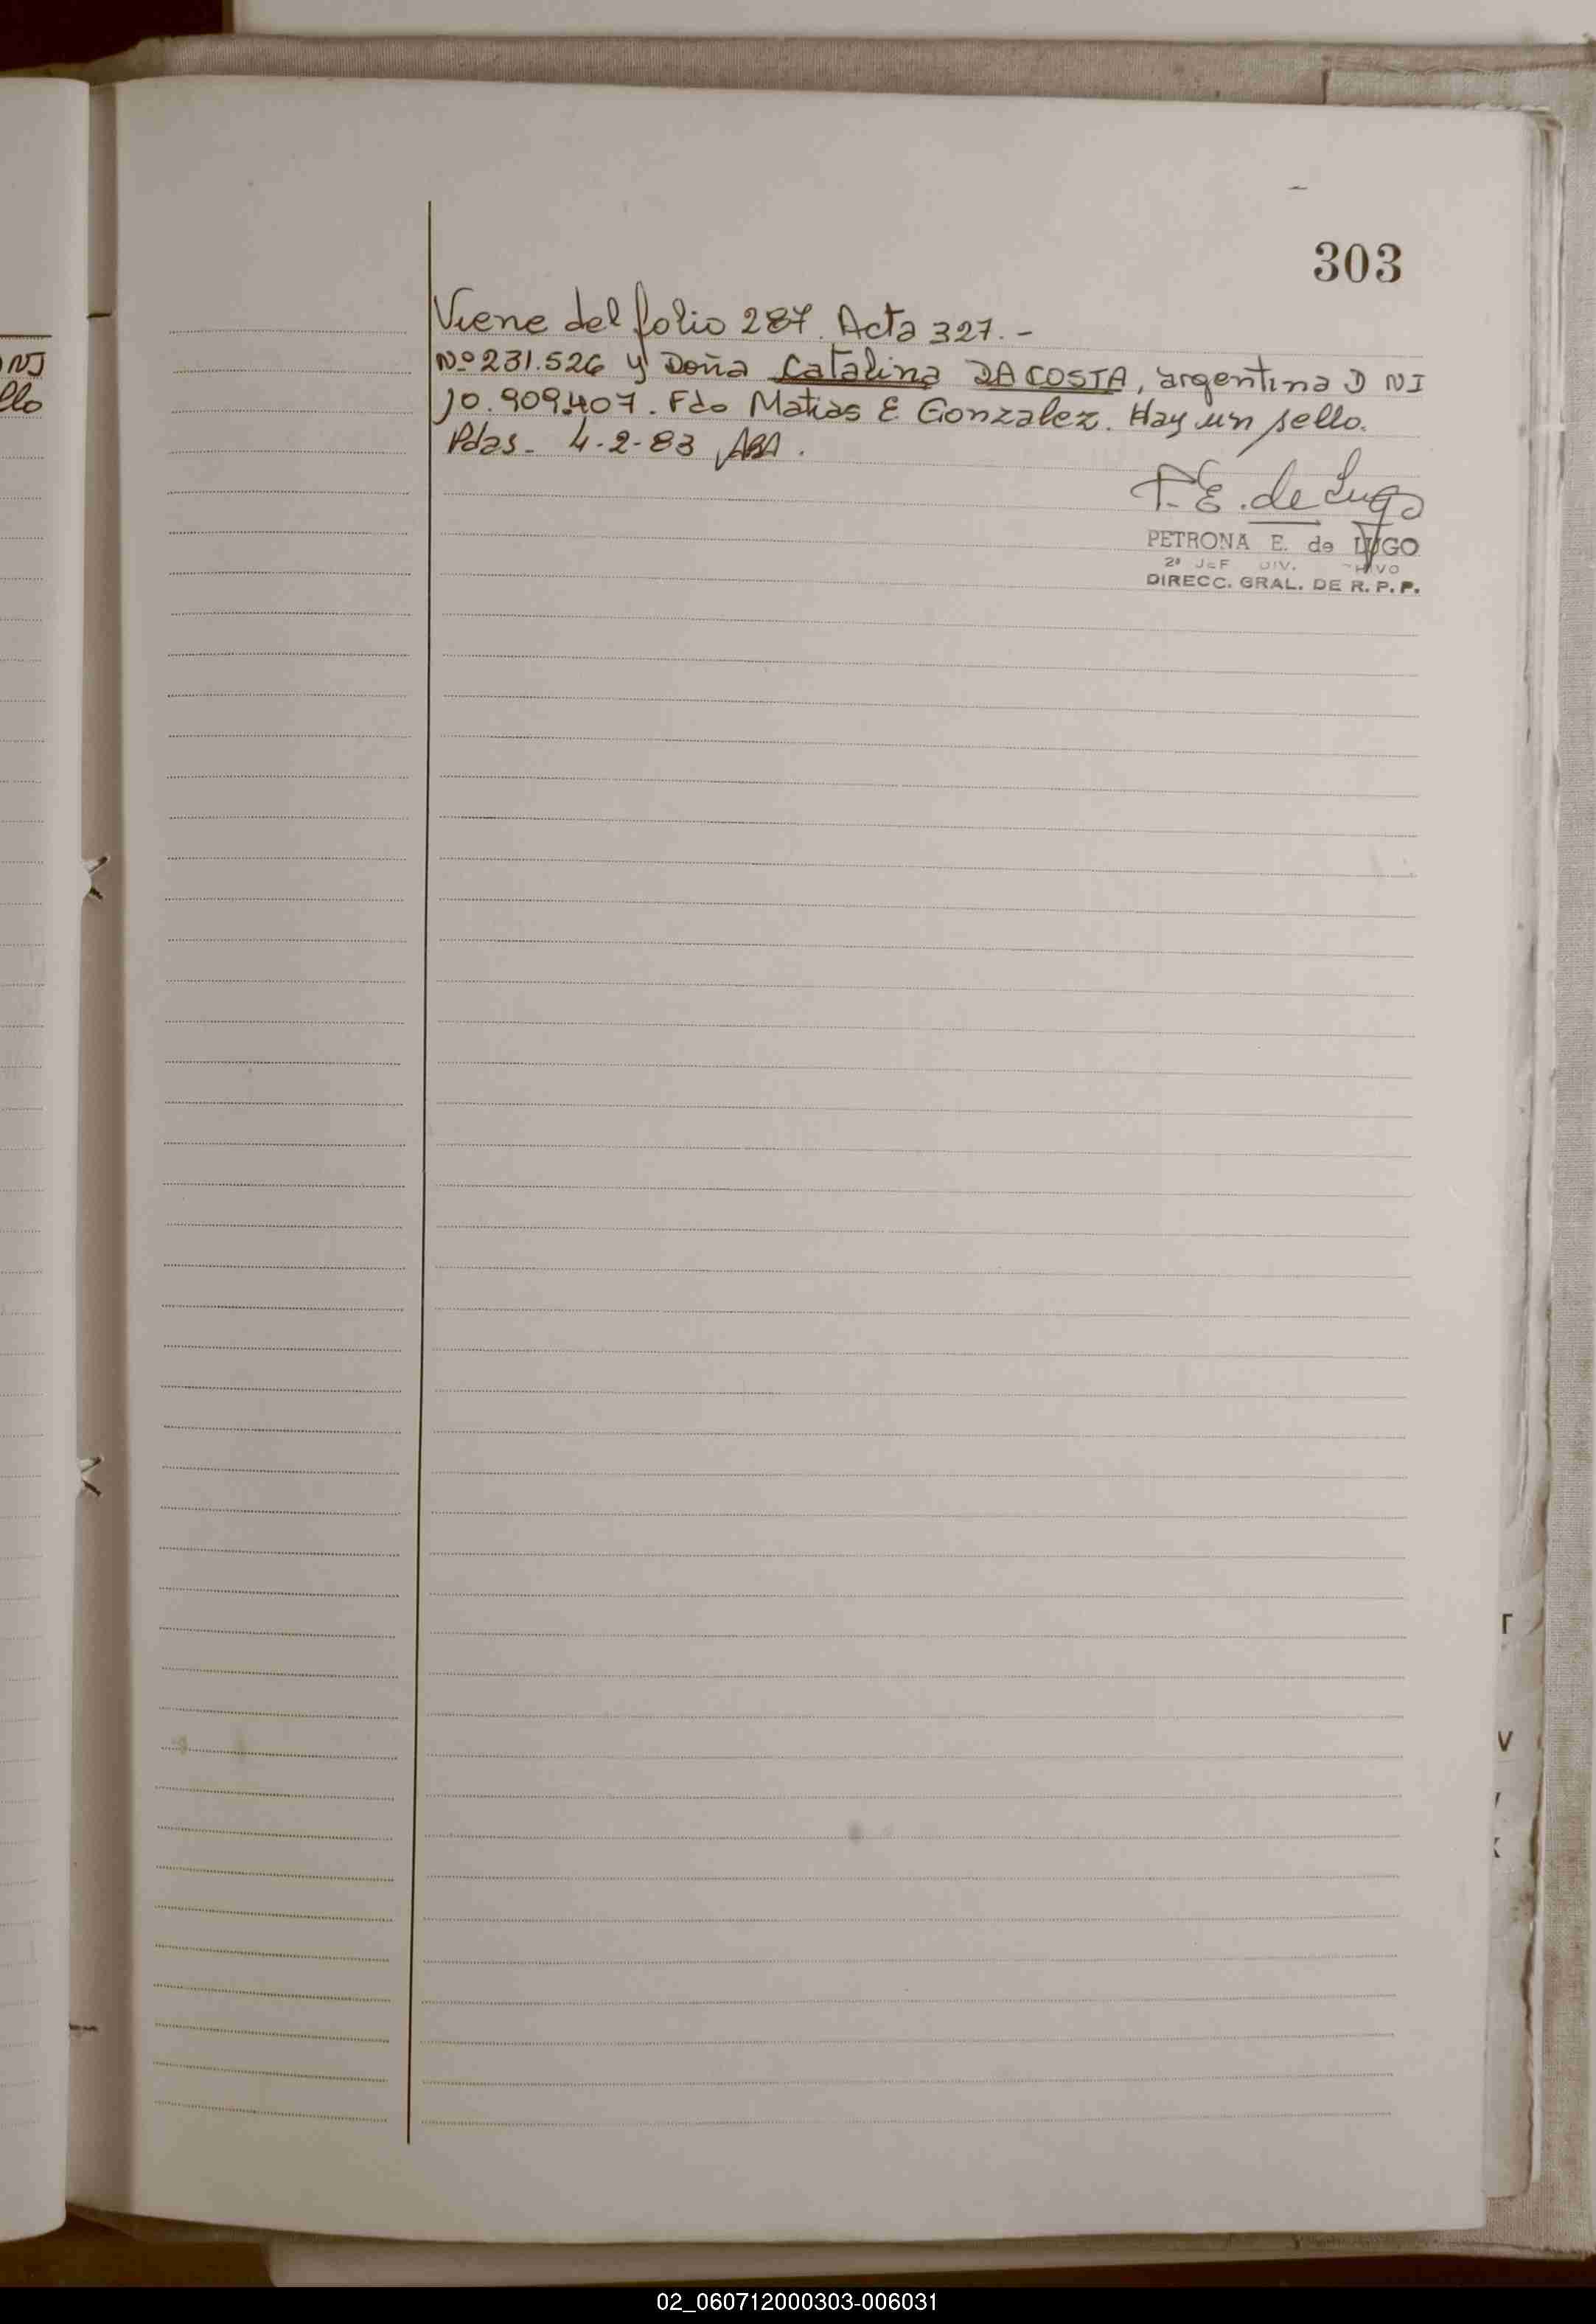 NJ
llo
303
Viene del folio 287. Acta 327.-
Nº 231.526 y Doña Catalina DA COSTA, argentina D NI
10.909.407. Fdo Matias E Gonzalez. Hay un sello.
Pdas. 4-2-83
P. E. de Lugo
PETRONA E. de LUGO
2º JEF DIV.
DIRECC. GRAL. DE R. P. P.
02_060712000303-006031